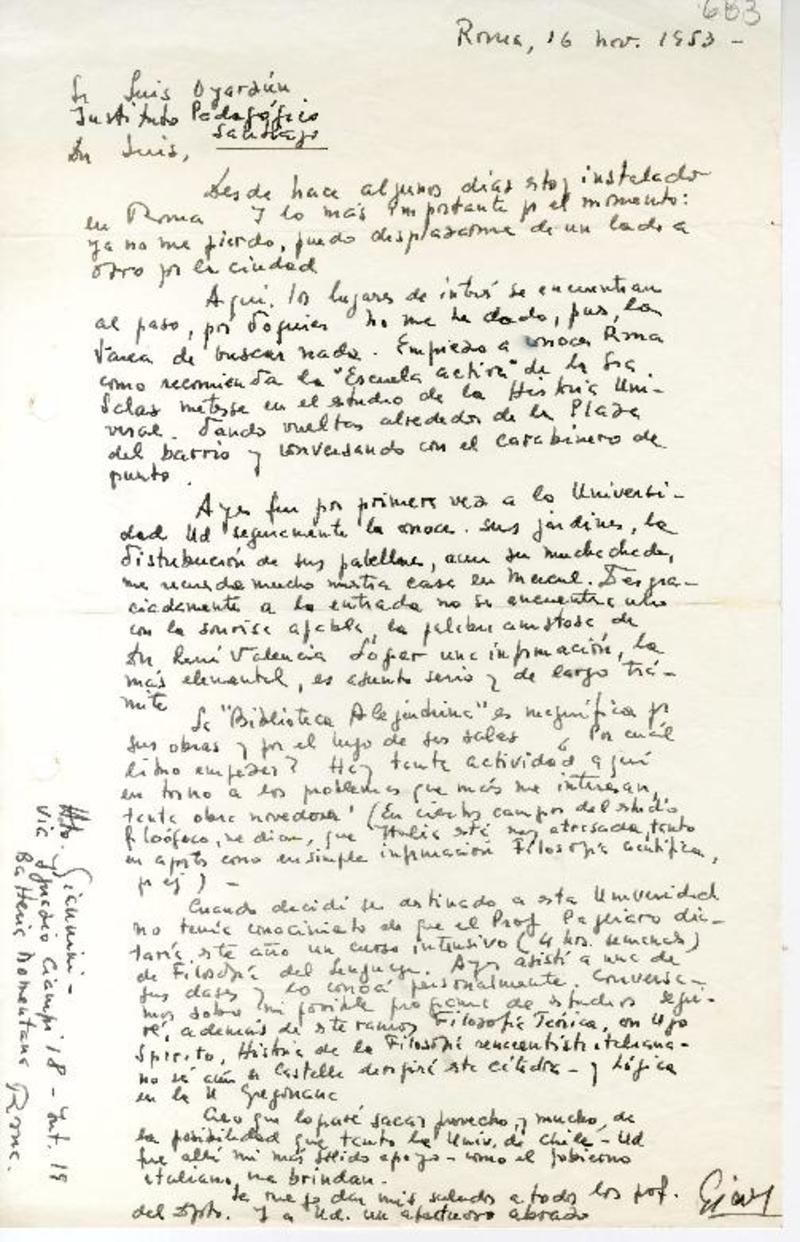 683
Roma, 16 nov. 1953 -
Sr Luis Oyarzún
Instituto Pedagógico
Santiago
Dn Luis,
Desde hace algunos días estoy instalado
en Roma Y lo más importante pr el momento:
ya no me pierdo, puedo desplazarme de un lado a
otro por la ciudad
Aquí, los lugares de interés se encuentran
al paso, por doquier No me he dado, pues, la
tarea de buscar nada. Empiezo a conocer Roma
como recomienda la "Escuela activa" de la Sra.
Salas meterse en el estudio de la Historia Uni-
versal. Dando vueltas alrededor de la Plaza
del barrio y conversando con el carabinero de
punto.
Ayer fui por primera vez a la Universi-
dad Ud seguramente la conoce. Sus jardines, la
distribución de sus pabellones, aun su muchachada,
me recuerda mucho nuestra casa en Macul. Desgra-
ciadamente a la entrada no se encuentra uno
con la sonrisa afable, la palabra amistosa de
Dn René Valencia Lograr una información, la
más elemental, es asunto serio y de largo trá-
mite
La "Biblioteca Alejandrina" es magnífica pr
sus obras y por el lujo de sus salas ¿Por cuál
libro empezar? Hay tanta actividad aquí
en torno a los problemas que más me interesan,
tanta obra novedosa! (En ciertos campos del estudio
filosófico, se dice, que Italia está muy atrasada, tanto
en aporte como en simple información Filosofía científica,
pr ej) -
Cuando decidí ser destinado a esta Universidad
no tenía conocimiento de que el Prof. Pagliaro dic-
taría este año un curso intensivo (4 hrs. semanas)
de Filosofía del Lenguaje. Ayer asistí a una de
sus clases y lo conocí personalmente. Conversa-
mos sobre mi posible programa de estudios Segui-
ré, además de este ramo, Filosofía Teórica, con Ugo
Spirito, Historia de la Filosofía renacentista italiana -
no sé aún si Castelli dirigirá esta cátedra - y Lógica
en la U Gregoriana
Creo que lograré sacar provecho, y mucho, de
la posibilidad que tanto la Univ. de Chile - Ud
fue allí mi más sólido apoyo - como el gobierno
italiano, me brindan.
Le ruego dar mis saludos a todos los prof.
del Dpto. Y a Ud. un afectuoso abrazo
Hto. Giannini -
Via Ignazio Ciampi 18 - Int. 18
Batteria Nomentana Roma.